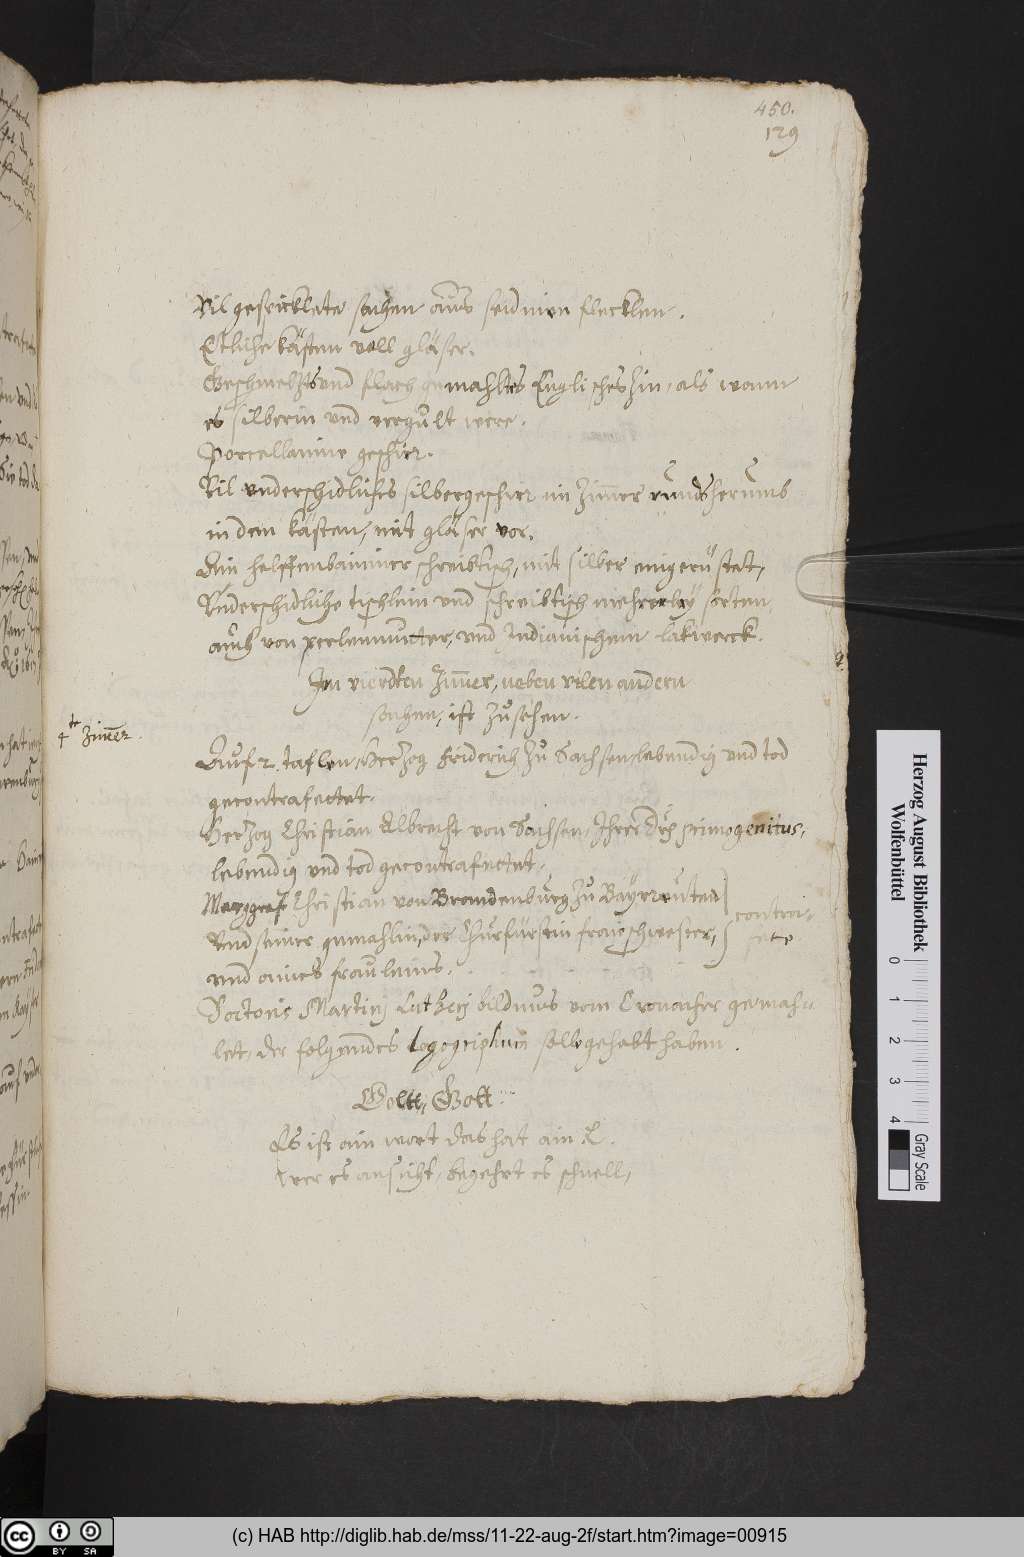 450.
129
Vil gesticklete sachen auß seidinen flecklen.
Etliche kästen voll gläser.
Geschmeltzt und flach gemahltes Englisches Zin, als wann
es silberin und vergült were.
Porcellanine geschirr.
Vil underschidliches silbergeschirr im Zimer rundsherumb
in den kästen, mit gläser vor.
Ain helffenbaininer schreibtisch, mit silber eingerüstet,
Underschidliche tischlein und schreibtisch mehrerley sorten,
auch von perlenmutter, und Indianischem lakwerck.
Im vierdten Zimer, neben vilen andern
sachen, ist zusehen.
4te Zimer.
Auf 2. taflen, Hertzog Friderich zu Sachsen, lebendig und tod
gecontrafettet.
Hertzog Christian Albrecht von Sachsen, Ihrer Drh primogenitus,
lebendig und tod gecontrafettet.
Marggraf Christian von Brandenburg zu Bayrreuten
Und seiner gemahlin, der Churfürstin fraw schwester,
und aines frauleins.
contra-
fete
Doctoris Martinj Lutherj bildnus vom Cronacher gemah-
let, der folgendes logogriphum solle gehabt haben.
Goltt, Gott
Es ist ain wort das hat ain L.
wer es ansicht, begehrt es schnell,
Herzog August Bibliothek
Wolfenbüttel
0 1 2 3 4
Gray Scale
cc BY SA
(c) HAB http://diglib.hab.de/mss/11-22-aug-2f/start.htm?image=00915